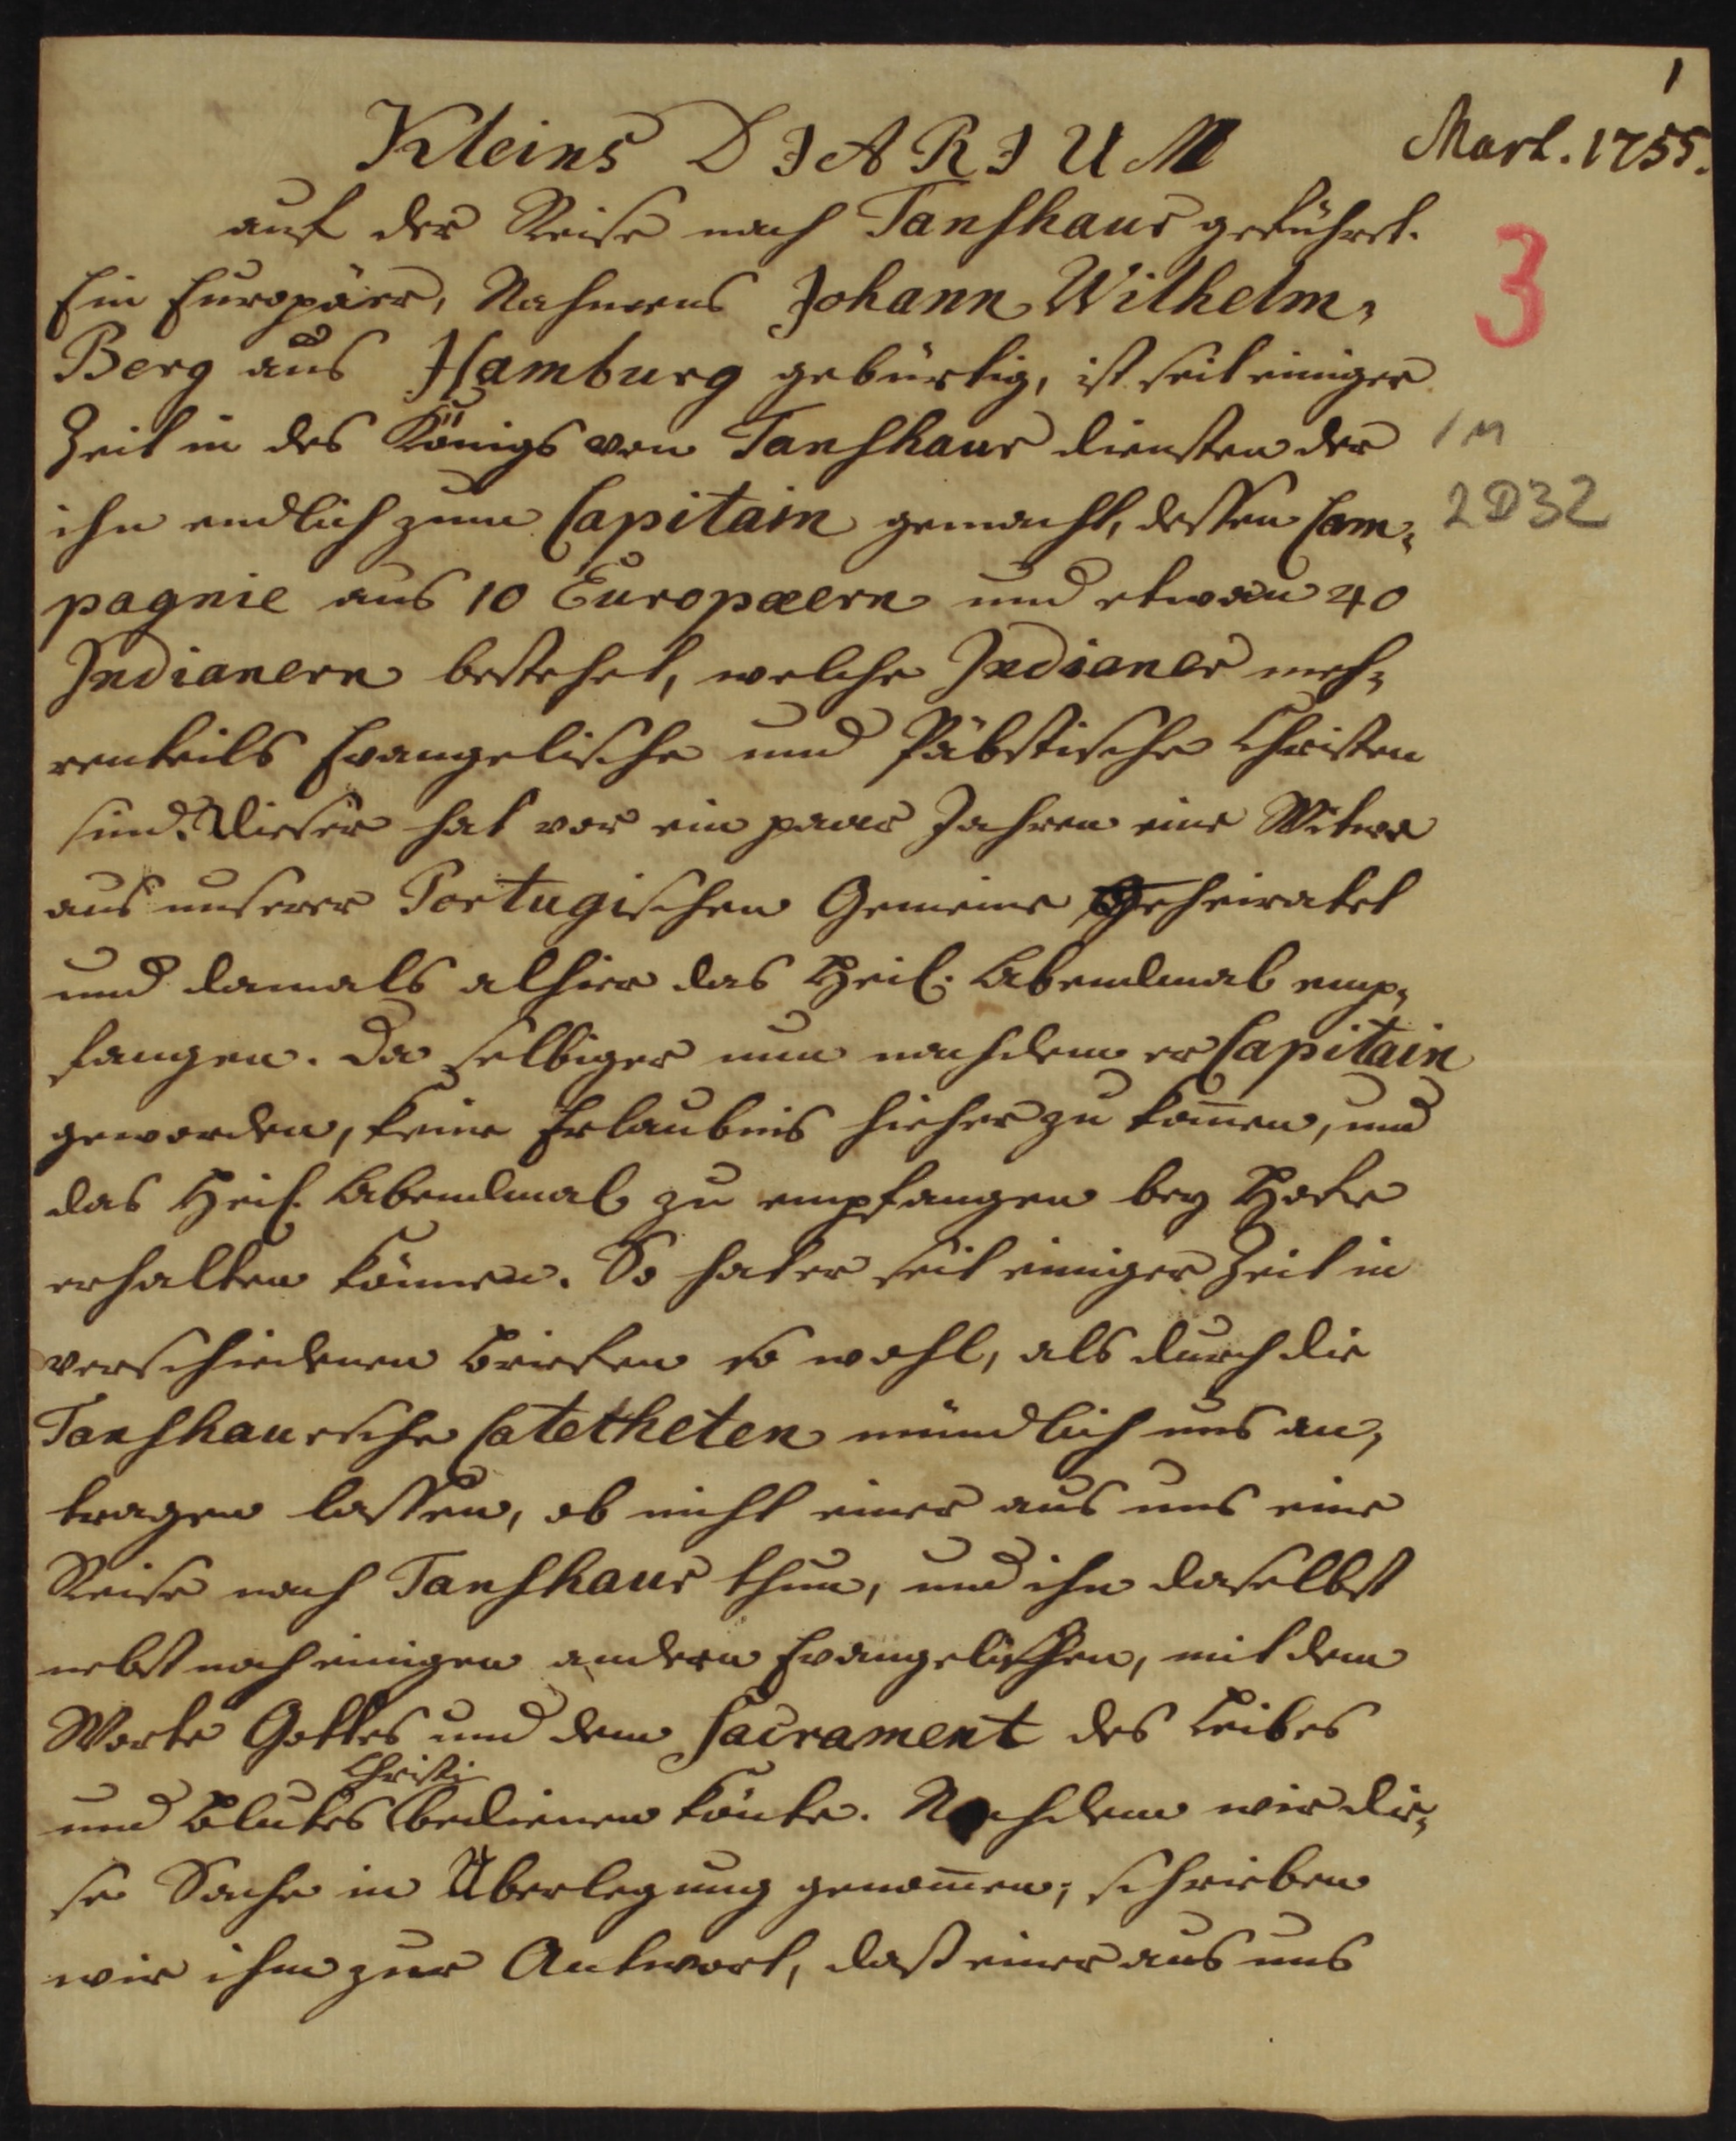 1
Kleins DIARIUM
Mart. 1755.
auf der Reise nach Tanshaur geführet.
3
Ein Europäer, Nahmens Johann Wilhelm,
Berg aus Hamburg gebürtig, ist seit einiger
Zeit in des Königs von Tanshaur diensten der
1M
ihn endlich zum Capitain gemacht, dessen Com,
2D32
pagnie aus 10 Europæern und etwan 40
Indianern bestehet, welche Indianer meh,
renteils Evangelische und Päbstische Christen
sind. Dieser hat vor ein paar Jahren eine Witwe
aus unserer Portugischen Gemeine geheiratet
und damals alhier das Heil. Abendmal emp,
fangen. Da selbiger nun nachdem er Capitain
geworden, keine Erlaubnis hieher zu kom̄en, und
das Heil. Abendmal zu empfangen bey Hofe
erhalten können. So hat er seit einiger Zeit in
verschiedenen Briefen so wohl, als durch die
Tanshaursche Catetheten mündlich uns an,
tragen lassen, ob nicht einer aus uns eine
Reise nach Tanshaur thun, und ihn daselbst
nebst noch einigen andern Evangelischen, mit dem
Worte Gottes und dem Sacrament des Leibes
Christi
und Blutes bedienen könte. Nachdem wir die,
se Sache in Überlegung genom̄en; schrieben
wir ihm zur Antwort, daß einer aus uns